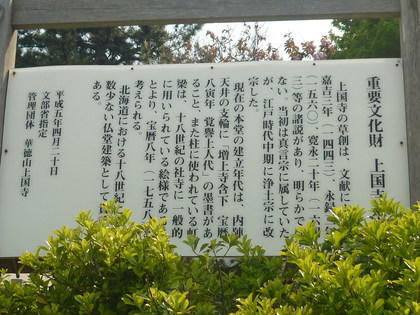 重要文化財 上国
上国寺の草創は、文献に
嘉吉三年（一四四三）、永禄
（一五六〇）、寛永二十年（一六
三）等の諸説があり、明らかで
ない。当初は真言宗に属していた
が、江戸時代中期に浄土宗に改
宗した。
現在の本堂の建立年代は、内陣
天井の支輪に「増上寺含下 宝暦
八寅年 覚譽上人代」の墨書があ
ること、また柱に使われている虹
梁は、十八世紀の社寺に一般的
に用いられている絵様であ
とより、宝暦八年（一七五八
考えられる。
北海道における十八世紀
数少ない仏堂建築として
ある。
平成五年四月二十日
文部省指定
管理団体 華徳山上国寺